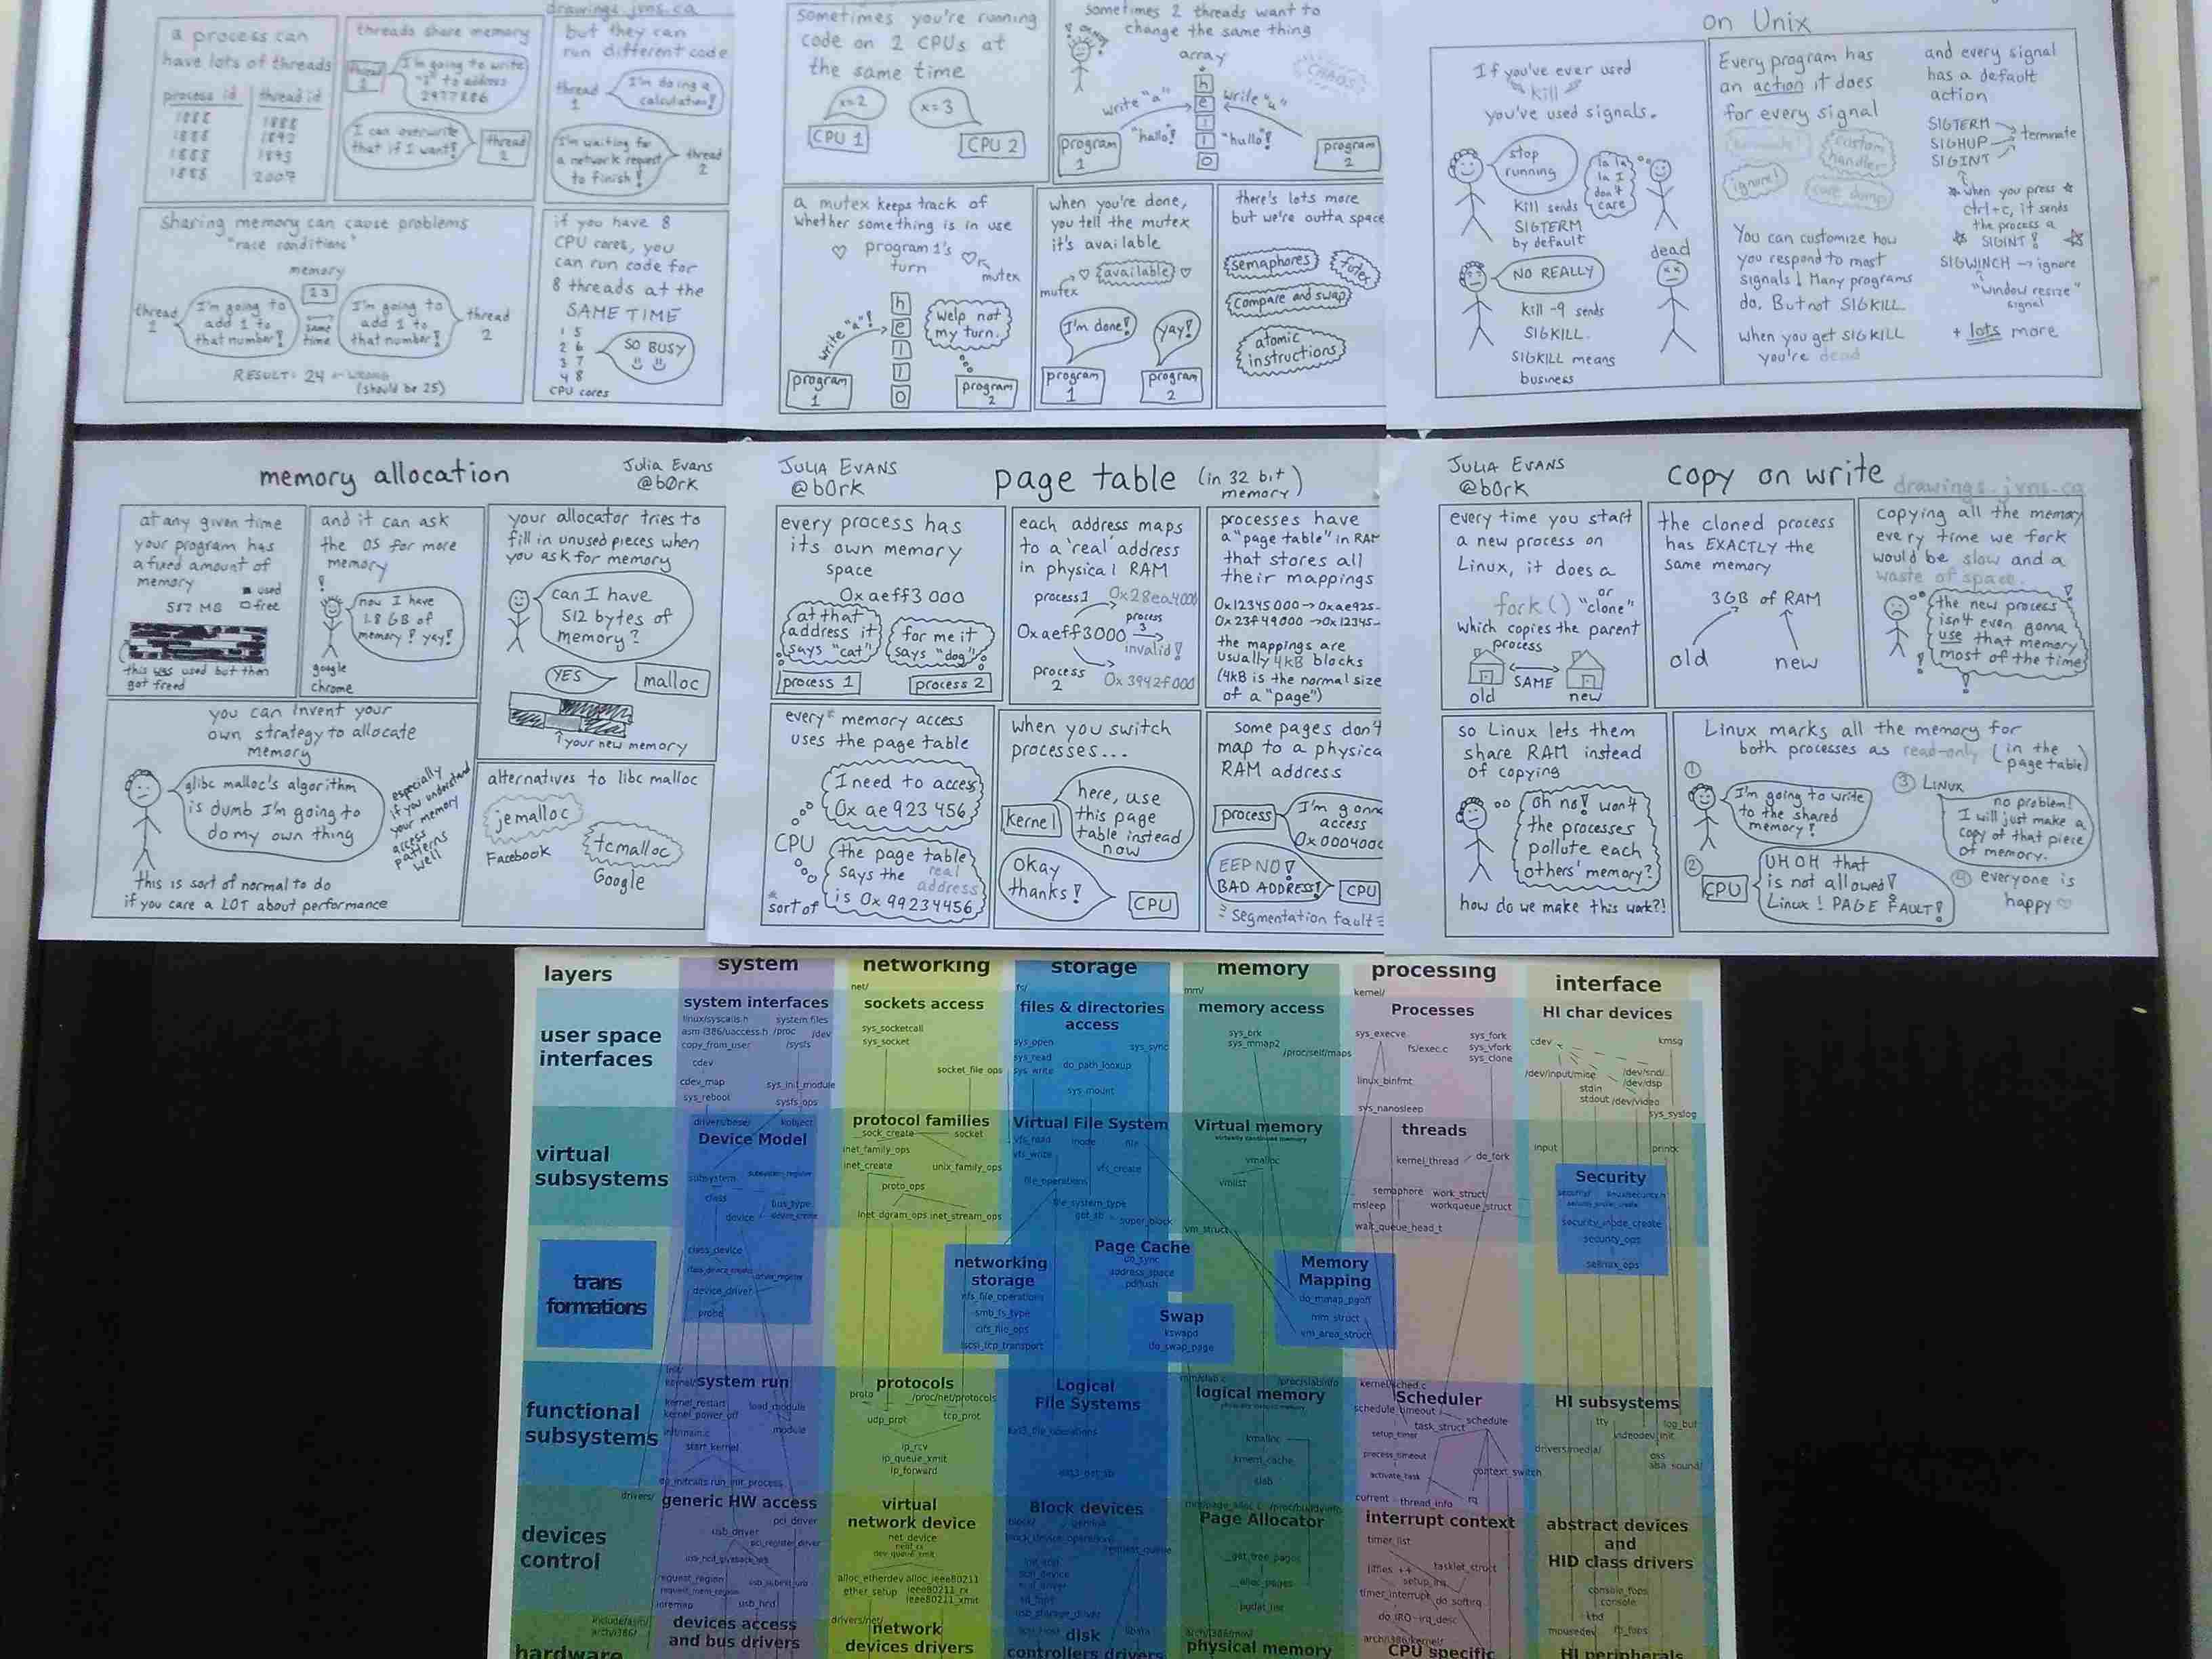 drawings.jvns.ca
a process can
have lots of threads
process id thread id
1888 1888
1888 1892
1888 1893
1888 2007
threads share memory
thread
1
I'm going to write
to address
2977886
I can overwrite
that if I want!
thread
2
but they can
run different code
thread
1
I'm doing a
calculation!
I'm waiting for
a network request
to finish!
thread
2
Sharing memory can cause problems
"race conditions"
memory
23
thread
1
I'm going to
add 1 to
that number!
same
time
I'm going to
add 1 to
that number!
thread
2
RESULT: 24 ← WRONG
(should be 25)
if you have 8
CPU cores, you
can run code for
8 threads at the
SAME TIME
1 5
2 6
3 7
4 8
CPU cores
SO BUSY
sometimes you're running
code on 2 CPUs at
the same time
x=2
x=3
CPU 1
CPU 2
sometimes 2 threads want to
change the same thing
array
CHAOS
write "a"
write "u"
"hallo!"
"hullo!"
h
e
l
l
o
program
1
program
2
a mutex keeps track of
whether something is in use
♡ program 1's ♡
turn
mutex
write "a"!
h
e
l
l
o
welp not
my turn.
program
1
program
2
when you're done,
you tell the mutex
it's available
♡ available ♡
mutex
I'm done!
yay!
program
1
program
2
there's lots more
but we're outta space
semaphores
futex
compare and swap
atomic
instructions
on Unix
If you've ever used
kill
you've used signals.
stop
running
la la
la I
don't
care
kill sends
SIGTERM
by default
NO REALLY
dead
kill -9 sends
SIGKILL.
SIGKILL means
business
Every program has
an action it does
for every signal
custom
handler
ignore!
core dump
You can customize how
you respond to most
signals! Many programs
do. But not SIGKILL.
when you get SIGKILL
you're dead
and every signal
has a default
action
SIGTERM
SIGHUP → terminate
SIGINT
when you press
ctrl+c, it sends
the process a
SIGINT!
SIGWINCH → ignore
"window resize"
signal
+ lots more
memory allocation
Julia Evans
@b0rk
at any given time
your program has
a fixed amount of
memory
used
free
587 MB
this was used but then
got freed
and it can ask
the OS for more
memory
now I have
1.8 GB of
memory! yay!
google
chrome
your allocator tries to
fill in unused pieces when
you ask for memory
can I have
512 bytes of
memory?
YES
malloc
your new memory
you can invent your
own strategy to allocate
memory
glibc malloc's algorithm
is dumb I'm going to
do my own thing
especially
if you understand
your memory
access
patterns
well
this is sort of normal to do
if you care a LOT about performance
alternatives to libc malloc
jemalloc
Facebook
tcmalloc
Google
JULIA EVANS
@b0rk
page table (in 32 bit
memory)
every process has
its own memory
space
0xaeff3 000
at that
address it
says "cat"
for me it
says "dog"
process 1
process 2
each address maps
to a 'real' address
in physical RAM
process1
0x28ea4000
0xaeff3000
process
3
invalid!
process
2
0x3942f000
processes have
a "page table" in RAM
that stores all
their mappings
0x12345000 → 0xae925-
0x23f49000 → 0x12345-
the mappings are
usually 4kB blocks
(4kB is the normal size
of a "page")
every* memory access
uses the page table
I need to access
0x ae923 456
CPU
the page table
says the real
address
is 0x 99234456
* sort of
when you switch
processes...
kernel
here, use
this page
table instead
now
Okay
thanks!
CPU
some pages don't
map to a physica
RAM address
process
I'm gonna
access
0x000400
EEP NO!
BAD ADDRESS!
CPU
Segmentation fault
JULIA EVANS
@b0rk
copy on write
drawings.jvns.ca
every time you start
a new process on
Linux, it does a
fork() or "clone"
which copies the parent
process
SAME
old
new
the cloned process
has EXACTLY the
same memory.
3GB of RAM
old
new
copying all the memory
every time we fork
would be slow and a
waste of space.
the new process
isn't even gonna
use that memory
most of the time!
so Linux lets them
share RAM instead
of copying
oh no! won't
the processes
pollute each
others' memory?
how do we make this work?!
Linux marks all the memory for
both processes as read-only (in the
page table)
①
I'm going to write
to the shared
memory!
②
CPU
UH OH that
is not allowed!
Linux! PAGE FAULT!
③ LINUX
no problem!
I will just make a
copy of that piece
of memory.
④ everyone is
happy ♡
layers
system
networking
storage
memory
processing
interface
user space
interfaces
system interfaces
linux/syscalls.h
system files
asm i386/uaccess.h /proc /dev
copy_from_user /sysfs
cdev
cdev_map
sys_init_module
sys_reboot
sysfs_ops
net/
sockets access
sys_socketcall
sys_socket
socket_file_ops
fs/
files & directories
access
sys_open
sys_read
sys_write
sys_sync
do_path_lookup
sys_mount
mm/
memory access
sys_brk
sys_mmap2
/proc/self/maps
kernel/
Processes
sys_execve
fs/exec.c
sys_fork
sys_vfork
sys_clone
linux_binfmt
sys_nanosleep
HI char devices
cdev
kmsg
/dev/input/mice
/dev/snd/
/dev/dsp
stdin
stdout /dev/video
sys_syslog
virtual
subsystems
drivers/base/
kobject
Device Model
subsystem
subsystem_register
class
bus_type
device
device_create
class_device
device_driver
probe
protocol families
sock_create
socket
inet_family_ops
inet_create
unix_family_ops
proto_ops
inet_dgram_ops inet_stream_ops
Virtual File System
vfs_read
inode
file
vfs_write
vfs_create
file_operations
file_system_type
get_sb
super_block
Virtual memory
vmalloc
vmlist
vm_struct
threads
kernel_thread
do_fork
semaphore work_struct
msleep
workqueue_struct
wait_queue_head_t
input
printk
Security
security_inode_create
security_ops
selinux_ops
trans
formations
networking
storage
nfs_file_operations
smb_fs_type
cifs_file_ops
iscsi_tcp_transport
Page Cache
do_sync
address_space
pdflush
Swap
kswapd
do_swap_page
Memory
Mapping
do_mmap_pgoff
mm_struct
vm_area_struct
functional
subsystems
init/
kernel/
system run
kernel_restart
kernel_power_off
load_module
init/main.c
module
start_kernel
do_initcalls run_init_process
protocols
proto
/proc/net/protocols
udp_prot
tcp_prot
ip_rcv
ip_queue_xmit
ip_forward
Logical
File Systems
ext3_file_operations
ext3_get_sb
mm/slab.c
/proc/slabinfo
logical memory
kmalloc
kmem_cache
slab
kernel/sched.c
Scheduler
schedule_timeout
schedule
task_struct
setup_timer
process_timeout
activate_task
context_switch
current
thread_info
rq
HI subsystems
tty
log_buf
videodev_init
drivers/media/
oss
alsa sound/
devices
control
drivers/
generic HW access
pci_driver
usb_driver
pci_register_driver
usb_hcd_giveback_urb
request_region
request_mem_region
usb_submit_urb
ioremap
usb_hcd
virtual
network device
net_device
netif_rx
dev_queue_xmit
alloc_etherdev alloc_ieee80211
ether_setup ieee80211_rx
ieee80211_xmit
Block devices
block/
gendisk
block_device_operations
request_queue
scsi_device
scsi_driver
sd_fops
usb_storage_driver
mm/page_alloc.c /proc/buddyinfo
Page Allocator
__get_free_pages
__alloc_pages
pgdat_list
interrupt context
timer_list
jiffies ++
tasklet_struct
setup_irq
timer_interrupt
do_softirq
do_IRQ
irq_desc
abstract devices
and
HID class drivers
console_fops
console
kbd
mousedev
fb_fops
hardware
include/asm/
arch/i386/
devices access
and bus drivers
drivers/net/
network
devices drivers
libata
disk
controllers drivers
arch/i386/mm/
physical memory
arch/i386/kernel/
CPU specific
HI peripherals